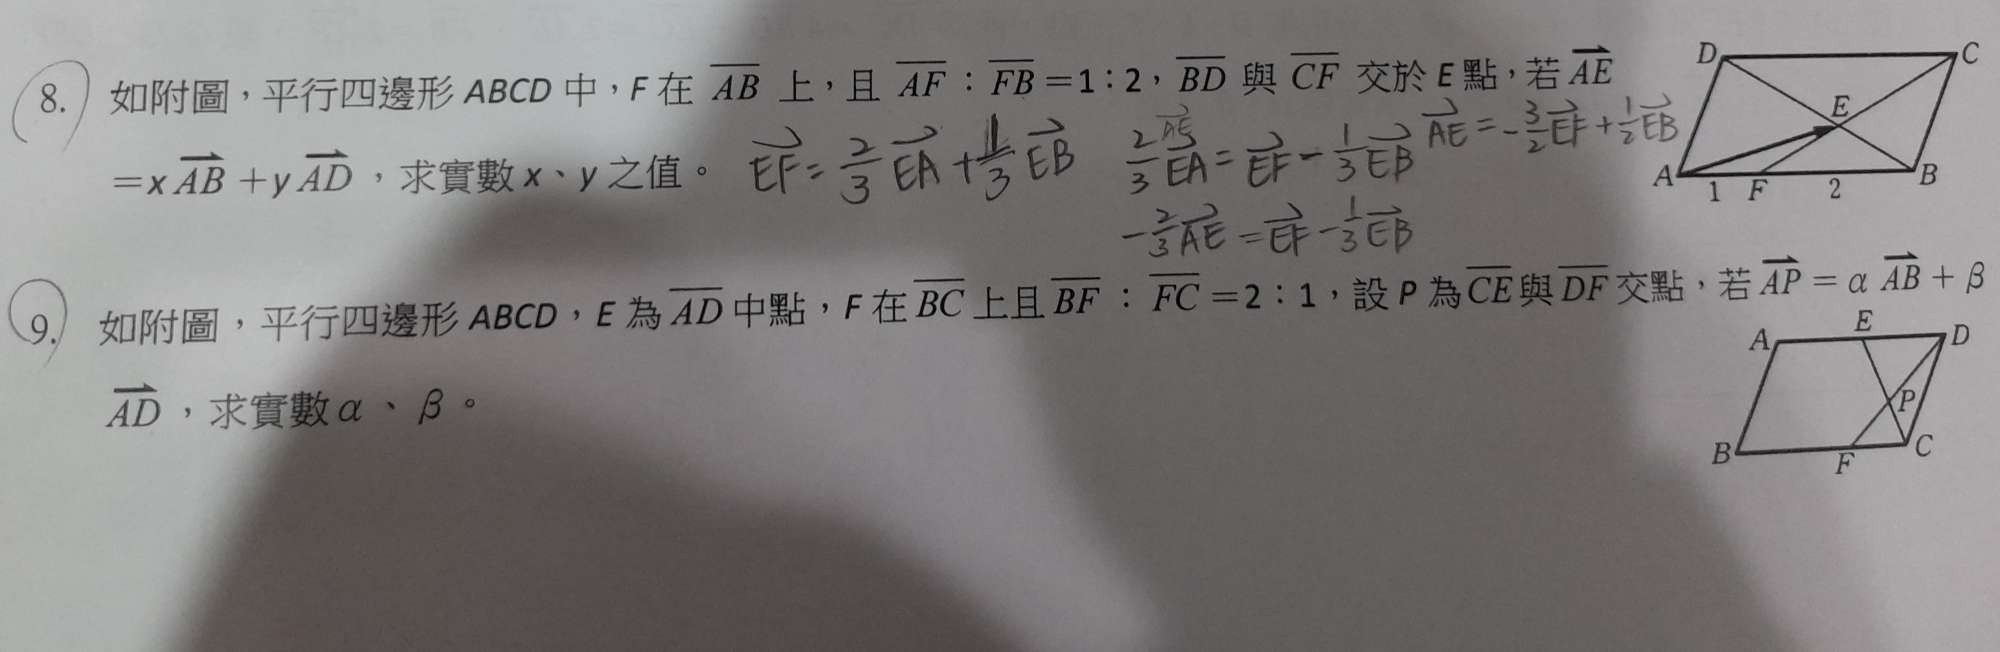 8. 如附圖，平行四邊形 ABCD 中，F 在 AB 上，且 AF：FB＝1：2，BD 與 CF 交於 E 點，若 AE
＝x AB ＋y AD ，求實數 x、y 之值。
EF = 2/3 EA + 1/3 EB
2/3 EA = EF - 1/3 EB
AE = -3/2 EF + 1/2 EB
-2/3 AE = EF - 1/3 EB
D C
E
A 1 F 2 B
9. 如附圖，平行四邊形 ABCD，E 為 AD 中點，F 在 BC 上且 BF：FC＝2：1，設 P 為 CE 與 DF 交點，若 AP＝α AB＋β
AD ，求實數 α、β。
A E D
P
B F C